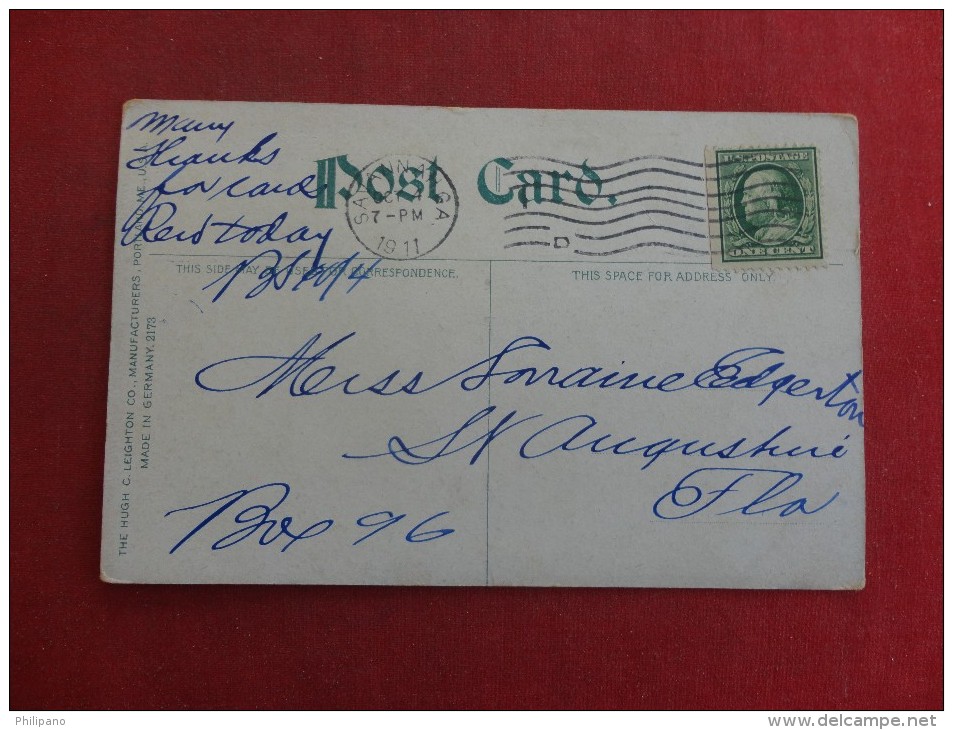 many
thanks
for card
Recd today
Post Card.
SAVANNAH GA
OCT
7-PM
1911
D
U.S. POSTAGE
ONE CENT
THIS SIDE MAY BE USED FOR CORRESPONDENCE.
THIS SPACE FOR ADDRESS ONLY.
Miss Lorraine Edgerton
St Augustine
Fla
Box 96
THE HUGH C. LEIGHTON CO., MANUFACTURERS, PORTLAND, ME., U.S.A.
MADE IN GERMANY. 2173
Philipano
www.delcampe.net